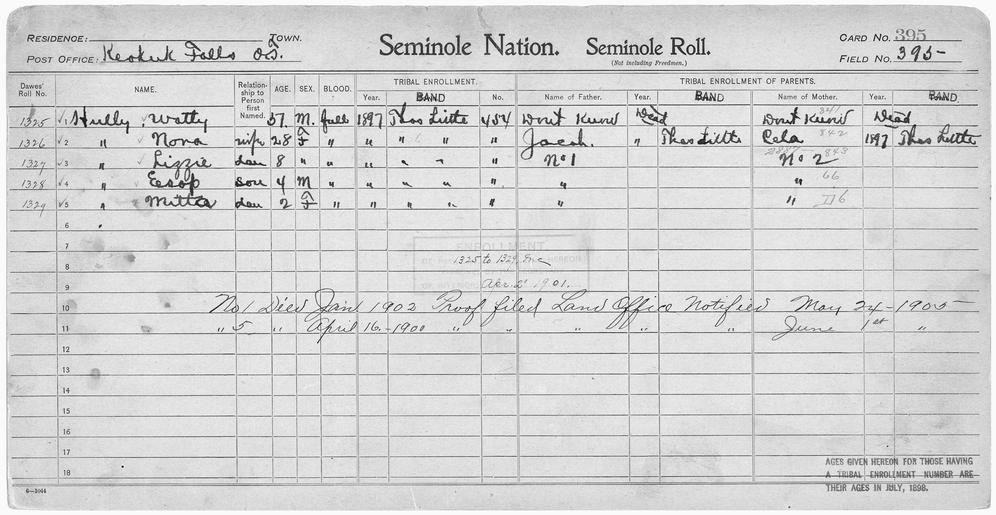 RESIDENCE: TOWN.
POST OFFICE: Keokuk Falls O.T.
Seminole Nation. Seminole Roll.
(Not including Freedmen.)
CARD NO. 395
FIELD NO. 395
Dawes' Roll No. NAME. Relationship to Person first Named. AGE. SEX. BLOOD. TRIBAL ENROLLMENT. TRIBAL ENROLLMENT OF PARENTS.
Year. BAND No. Name of Father. Year. BAND Name of Mother. Year. BAND
1325 1 Hully, Watty 57 M. full 1897 Thos Little 454 Don't Know Dead Don't Know Dead
1326 2 " Nona wife 28 F " " " " Jacob. " Thos Little Cela 842 1897 Thos Little
1327 3 " Lizzie dau 8 " " " " " " No 1 No 2 843
1328 4 " Eesop son 4 M " " " " " " " 66
1329 5 " dau 2 F " " " " " " "
6
7
ENROLLMENT
8 1325 to 1329, Inc
HEREON
9 Apr. 2" 1901.
10 No 1 Died Jan. 1902 Proof filed Land Office Notified May 24 - 1905
11 " 5 " April 16, - 1900 " " " " " June 1st "
12
13
14
15
16
17
18
AGES GIVEN HEREON FOR THOSE HAVING
A TRIBAL ENROLLMENT NUMBER ARE
THEIR AGES IN JULY, 1898.
6—3044